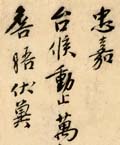 忠嘉
台候動止萬
啓晤伏冀